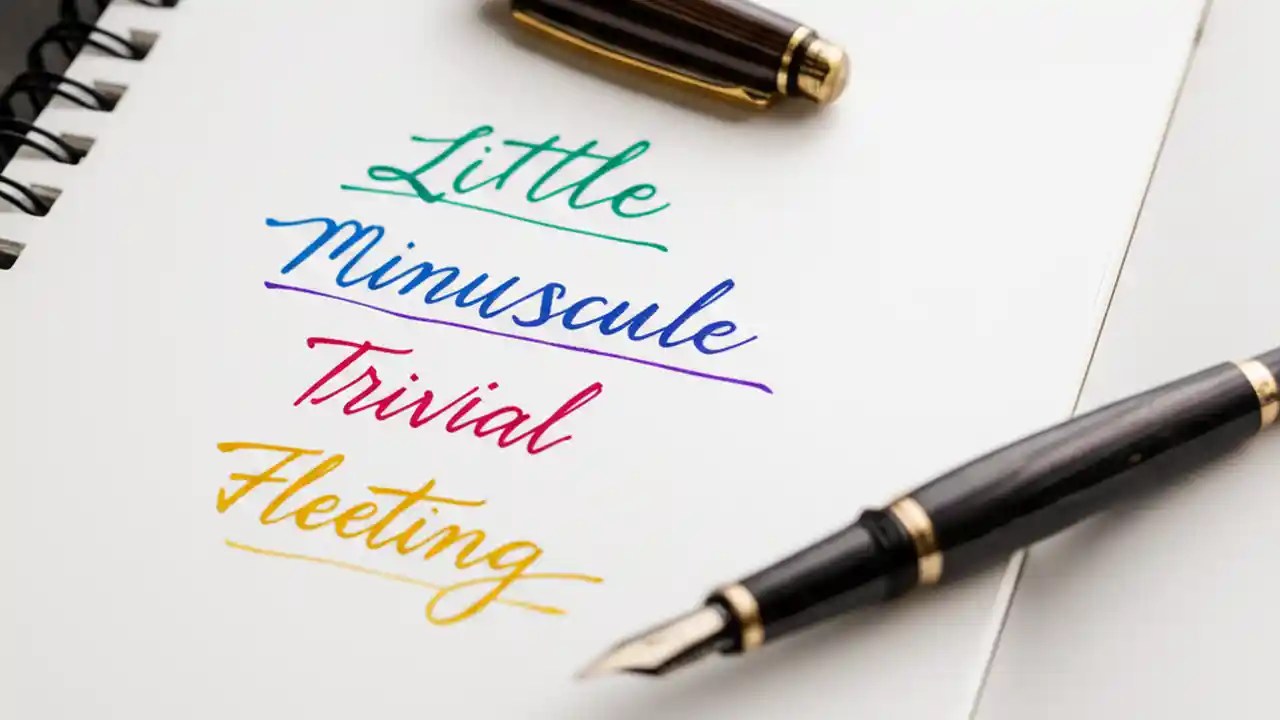 Little
Minuscule
Trivial
Fleeting